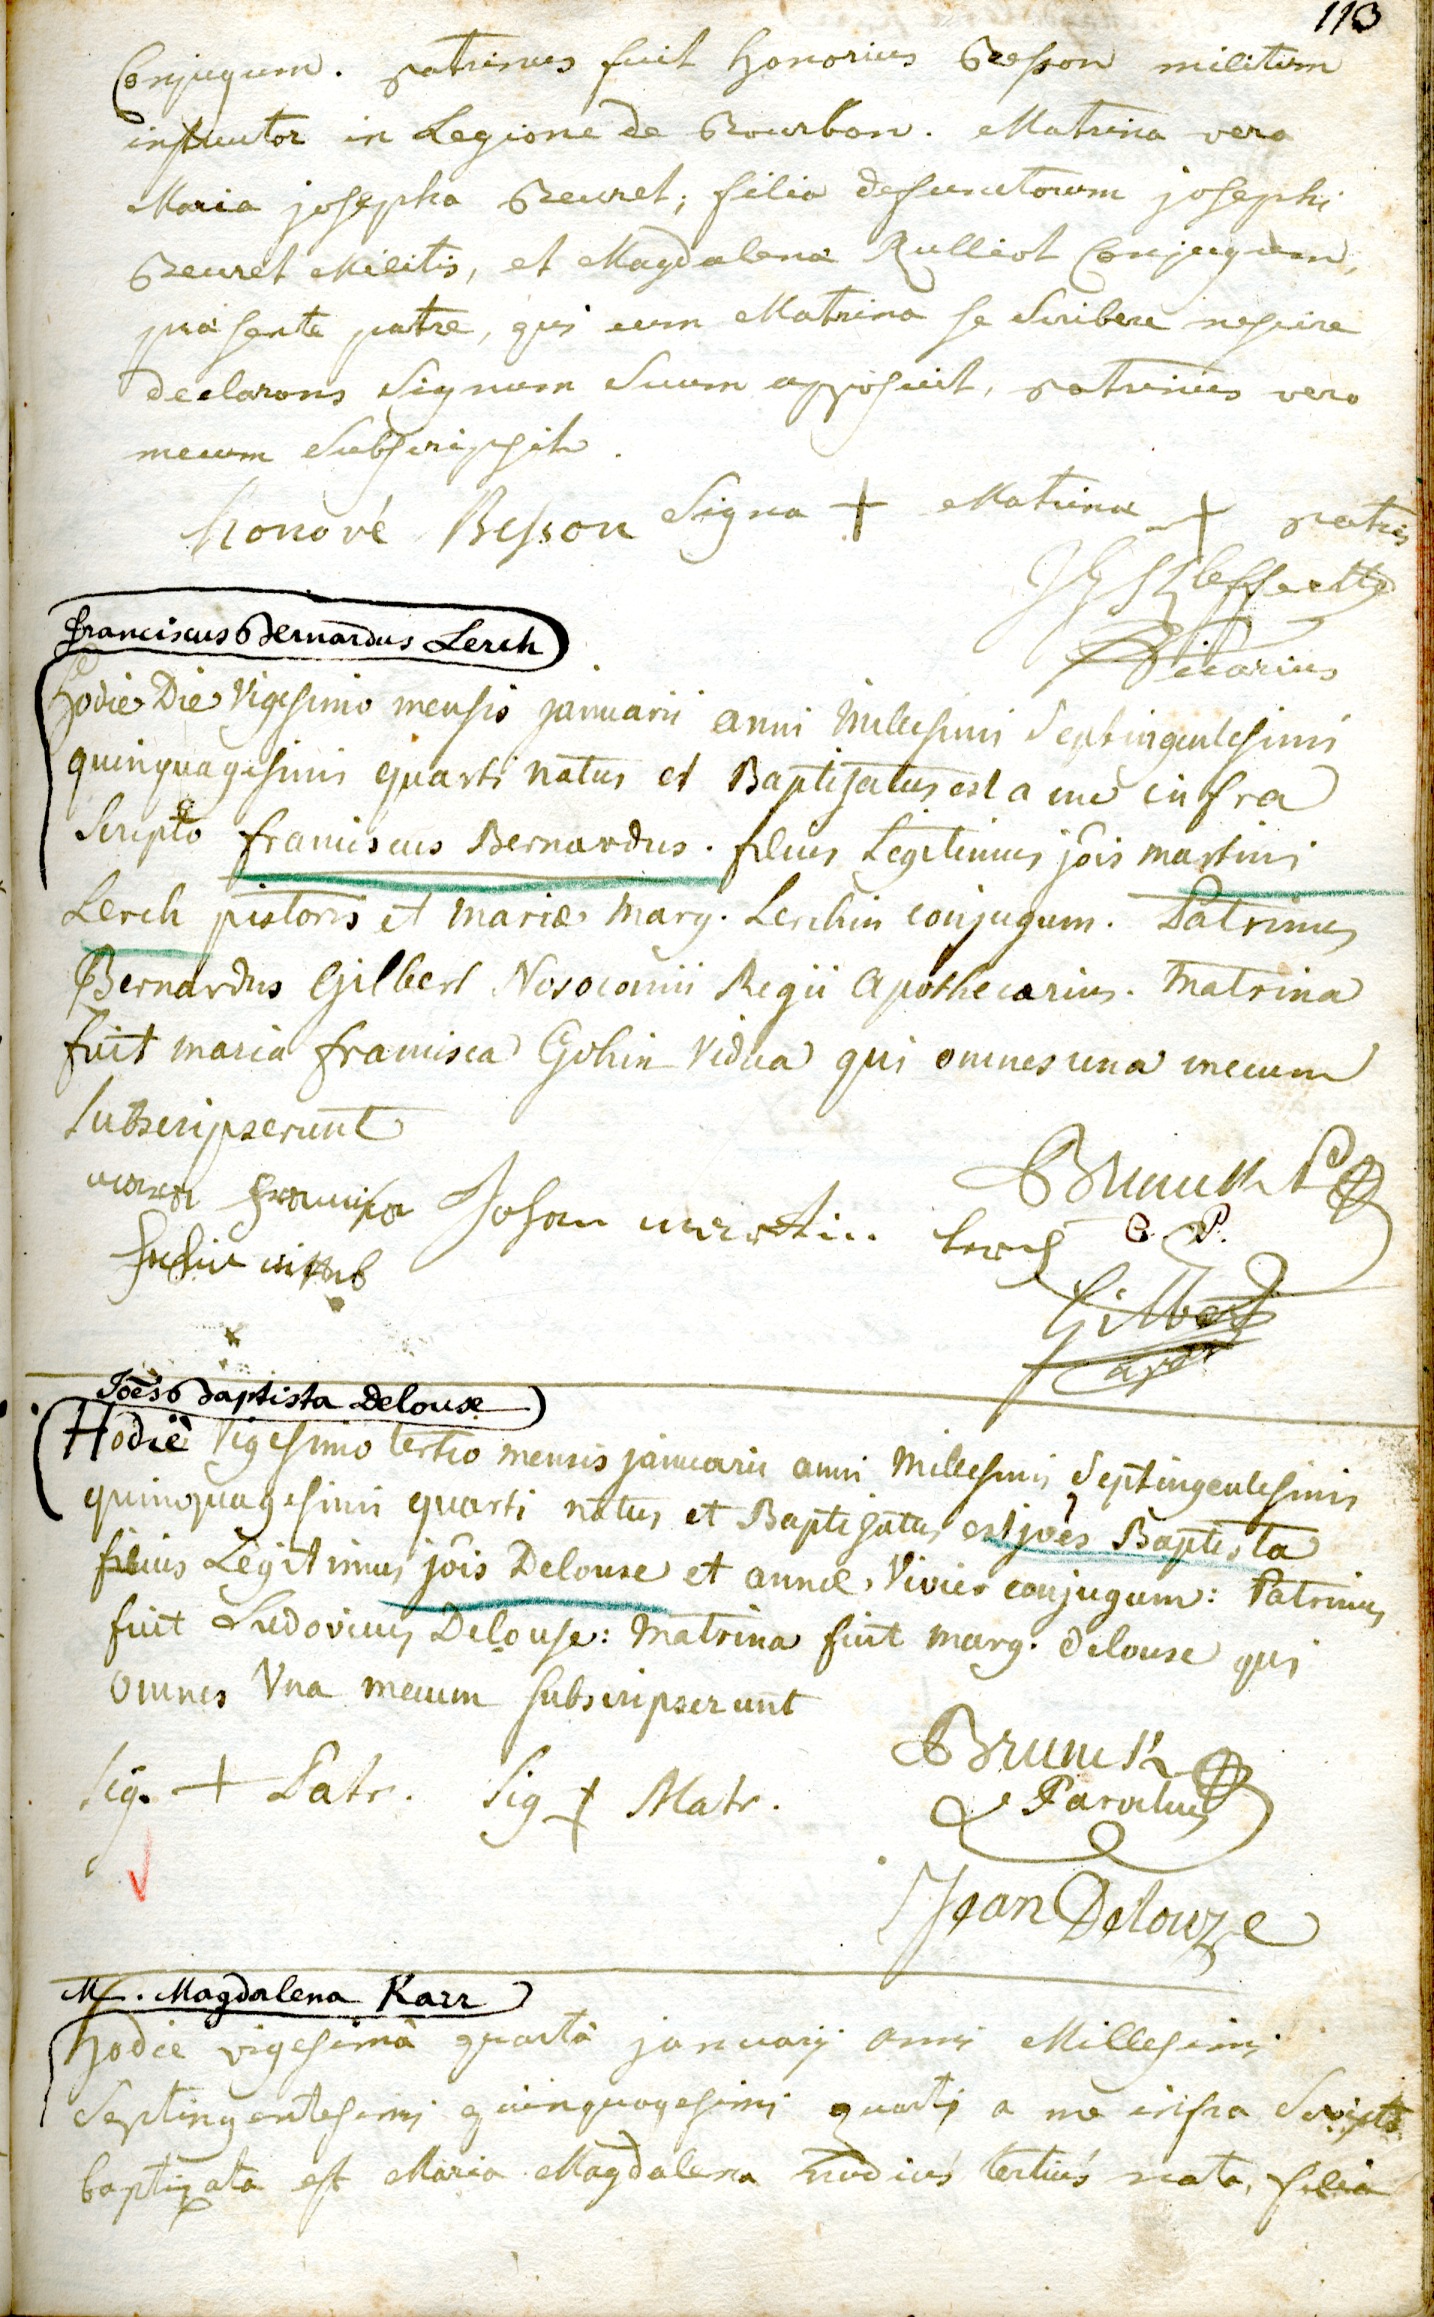 113
Conjugum. patrinus fuit honorius Besson militum
instructor in Legione de Bourbon. Matrina vero
Maria josepha Beuret; filia defunctorum josephi
Beuret Militis, et Magdalena Rulliot Conjugum,
præsente patre, qui cum Matrina se scribere nescire
declarans Signum Suum apposuit, patrinus vero
mecum Subscripsit.
honoré Besson Signa + Matrinæ + patris
Vicarius
franciscus Bernardus Lerch
hodie Die Vigesimo mensis januarii anni Millesimi Septingentesimi
quinquagesimi quarti natus et Baptizatus est a me infra
Scripto franciscus Bernardus. filius Legitimus jöis martini
Lerch pistoris et mariæ marg. Lerchin conjugum. Patrinus
Bernardus Gilbert Nosocomii Regii Apothecarius. Matrina
fuit maria francisca Gohin Vidua qui omnes una mecum
subscripserunt
maria francisca Johan martin lerch Brunck P
C. P.
Gilbert
Joês Baptista Delouse
Hodiè Vigesimo tertio mensis januarii anni Millesimi Septingentesimi
quinquagesimi quarti natus et Baptizatus est joês Baptista
filius Legitimus jöis Delouse et annæ Vivier conjugum: Patrinus
fuit Ludovicus Delouse: Matrina fuit marg. delouse qui
omnes Vna mecum subscripserunt
Sig. + Patr. Sig + Matr. Brunck
Parochus
Jean Delouze
M. Magdalena Karr
hodie vigesimâ quartâ januarij anni Millesimi
Septingentesimi quinquagesimi quarti a me infra Scripto
baptizata est Maria Magdalena nudius tertius nata, filia